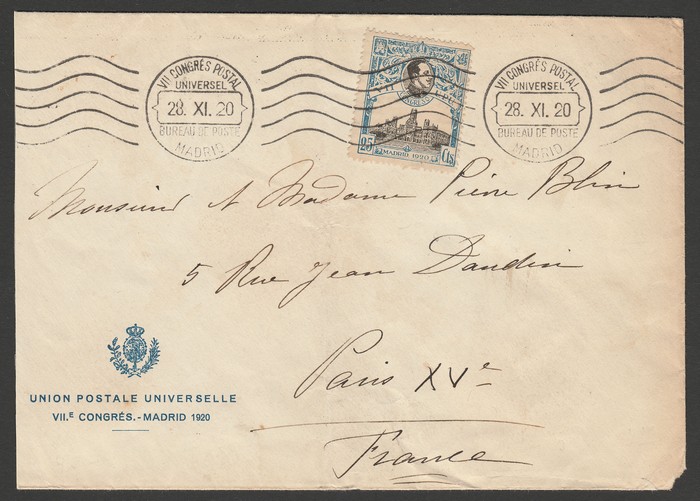 VII CONGRÉS POSTAL
UNIVERSEL
28. XI. 20
BUREAU DE POSTE
MADRID
25 Cts
MADRID 1920
VII CONGRÉS POSTAL
UNIVERSEL
28. XI. 20
BUREAU DE POSTE
MADRID
Monsieur et Madame Pierre Blin
5 Rue Jean Daudin
Paris XVe
France
UNION POSTALE UNIVERSELLE
VII.E CONGRÉS.-MADRID 1920